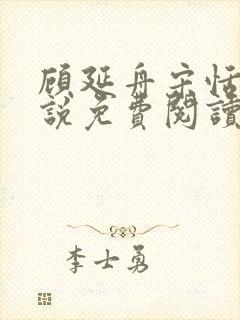 顾延舟宋恬
說免費閱讀
李士勇